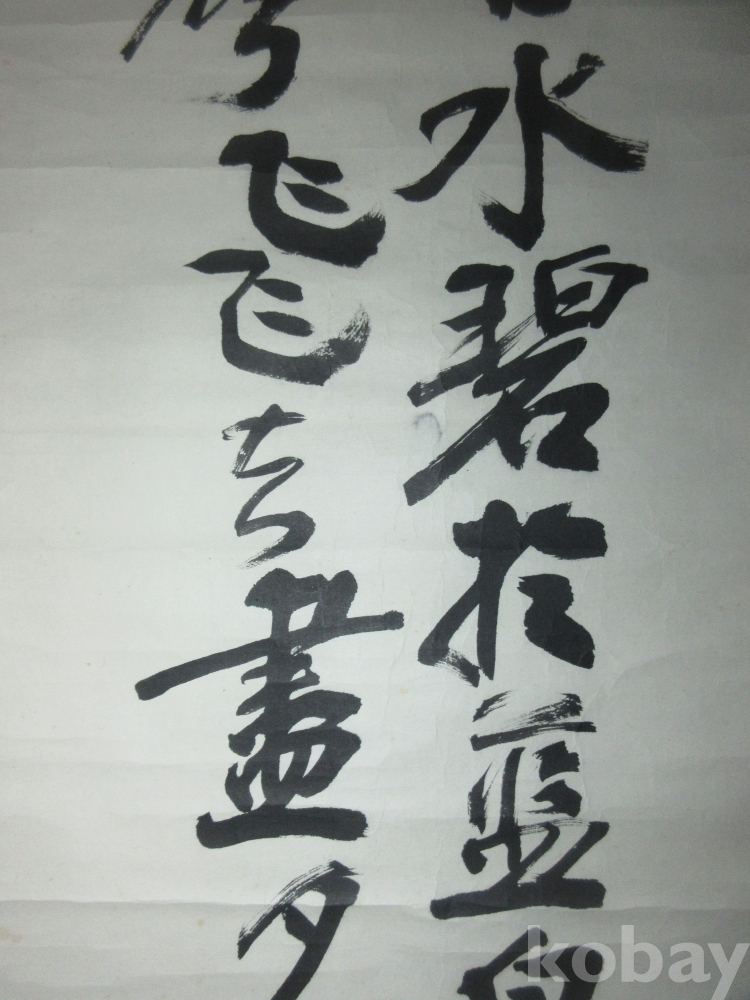 水碧於藍白
飛飛去盡夕
kobay